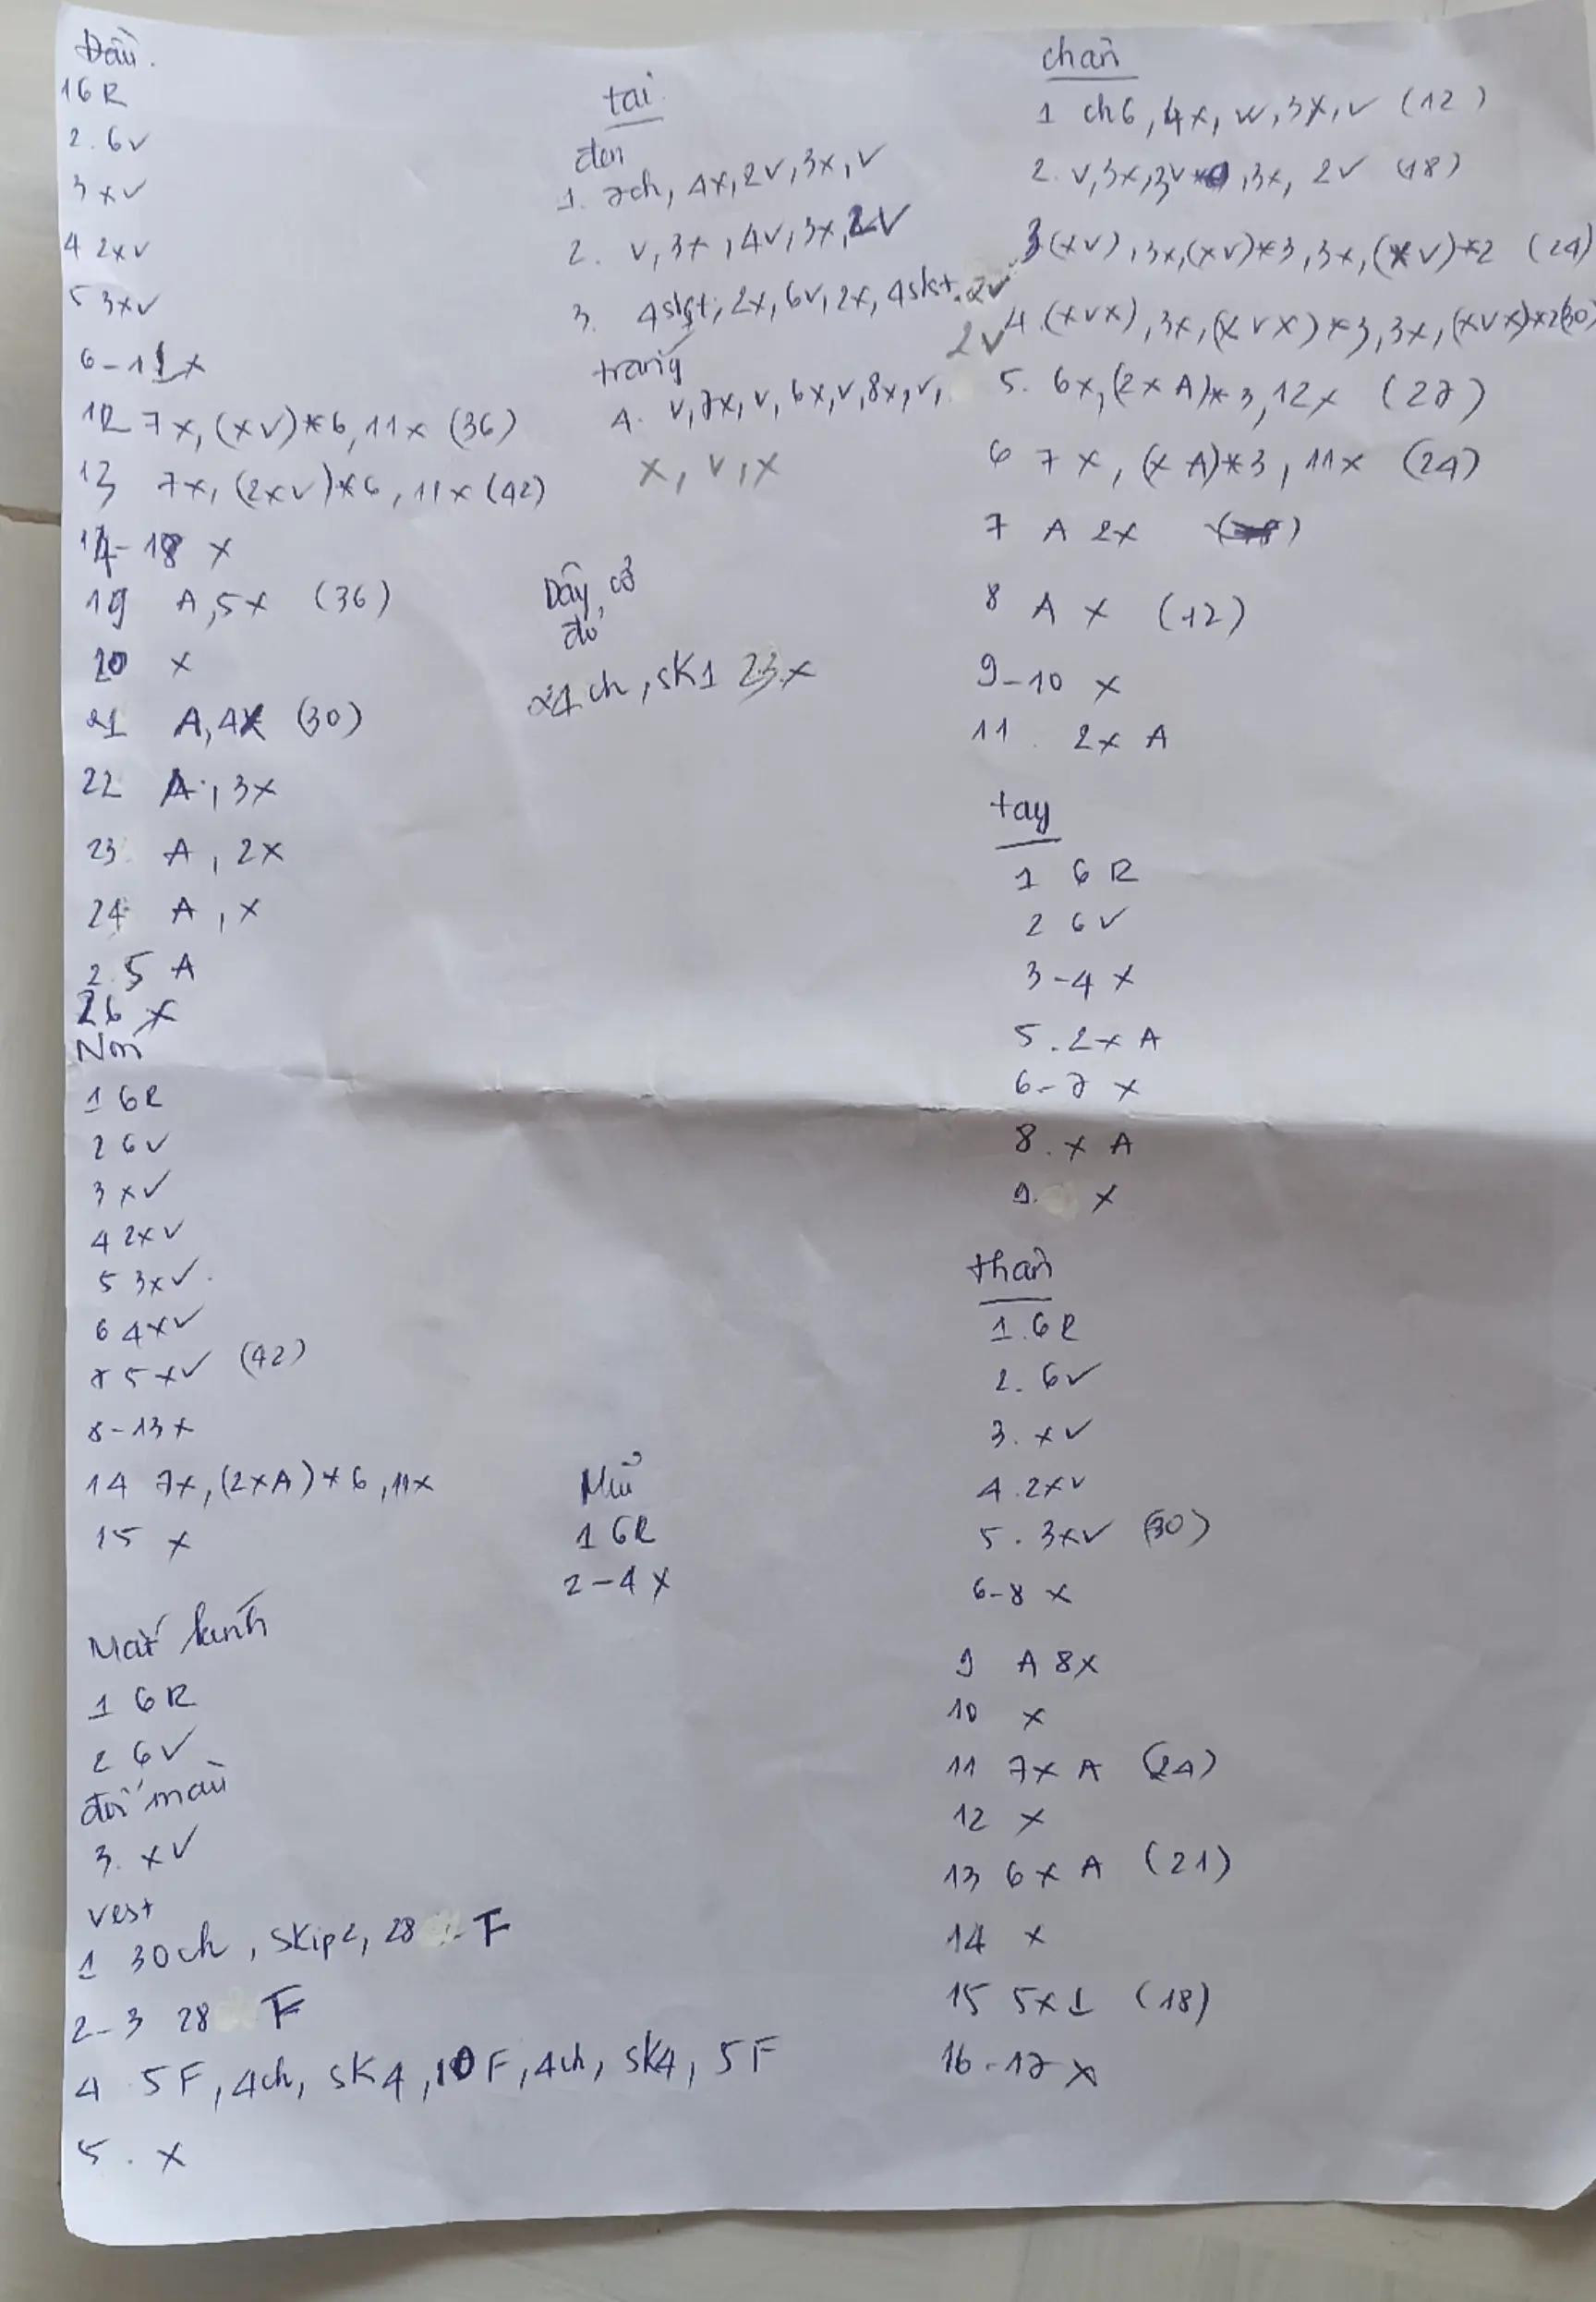 Đầu.
1 6R
2. 6v
3 xv
4 2xv
5 3xv
6-11 x
12 7x, (xv)*6, 11x (36)
13 7x, (2xv)*6, 11x (42)
14-18 x
19 A, 5x (36)
20 x
21 A, 4x (30)
22 A, 3x
23 A, 2x
24 A, x
25 A
26 x
Nón
1 6R
2 6v
3 xv
4 2xv
5 3xv.
6 4xv
7 5xv (42)
8-13 x
14 7x, (2xA)*6, 11x
15 x
Mắt kính
1 6R
2 6v
đổi màu
3. xv
vest
1 30ch, skip2, 28 F
2-3 28 F
4 5F, 4ch, sk4, 10F, 4ch, sk4, 5F
5. x
tai
đen
1. 7ch, 4x, 2v, 3x, v
2. v, 3x, 4v, 3x, 2v
3. 4slst, 2x, 6v, 2x, 4slst. 2v
2v
trắng
4. v, 7x, v, 6x, v, 8x, v,
x, v, x
Dây cổ
đỏ
24 ch, sk1 23x
Mũi
1 6R
2-4 x
chân
1 ch6, 4x, w, 3x, v (12)
2. v, 3x, 3v, 3x, 2v (18)
3 (xv), 3x, (xv)*3, 3x, (xv)*2 (24)
4. (xvx), 3x, (xvx)*3, 3x, (xvx)*2 (30)
5. 6x, (2xA)*3, 12x (27)
6 7x, (xA)*3, 11x (24)
7 A 2x
8 A x (12)
9-10 x
11 2x A
tay
1 6R
2 6v
3-4 x
5. 2x A
6-7 x
8. x A
9. x
thân
1. 6R
2. 6v
3. xv
4. 2xv
5. 3xv (30)
6-8 x
9 A 8x
10 x
11 7x A (24)
12 x
13 6x A (21)
14 x
15 5x1 (18)
16-17 x